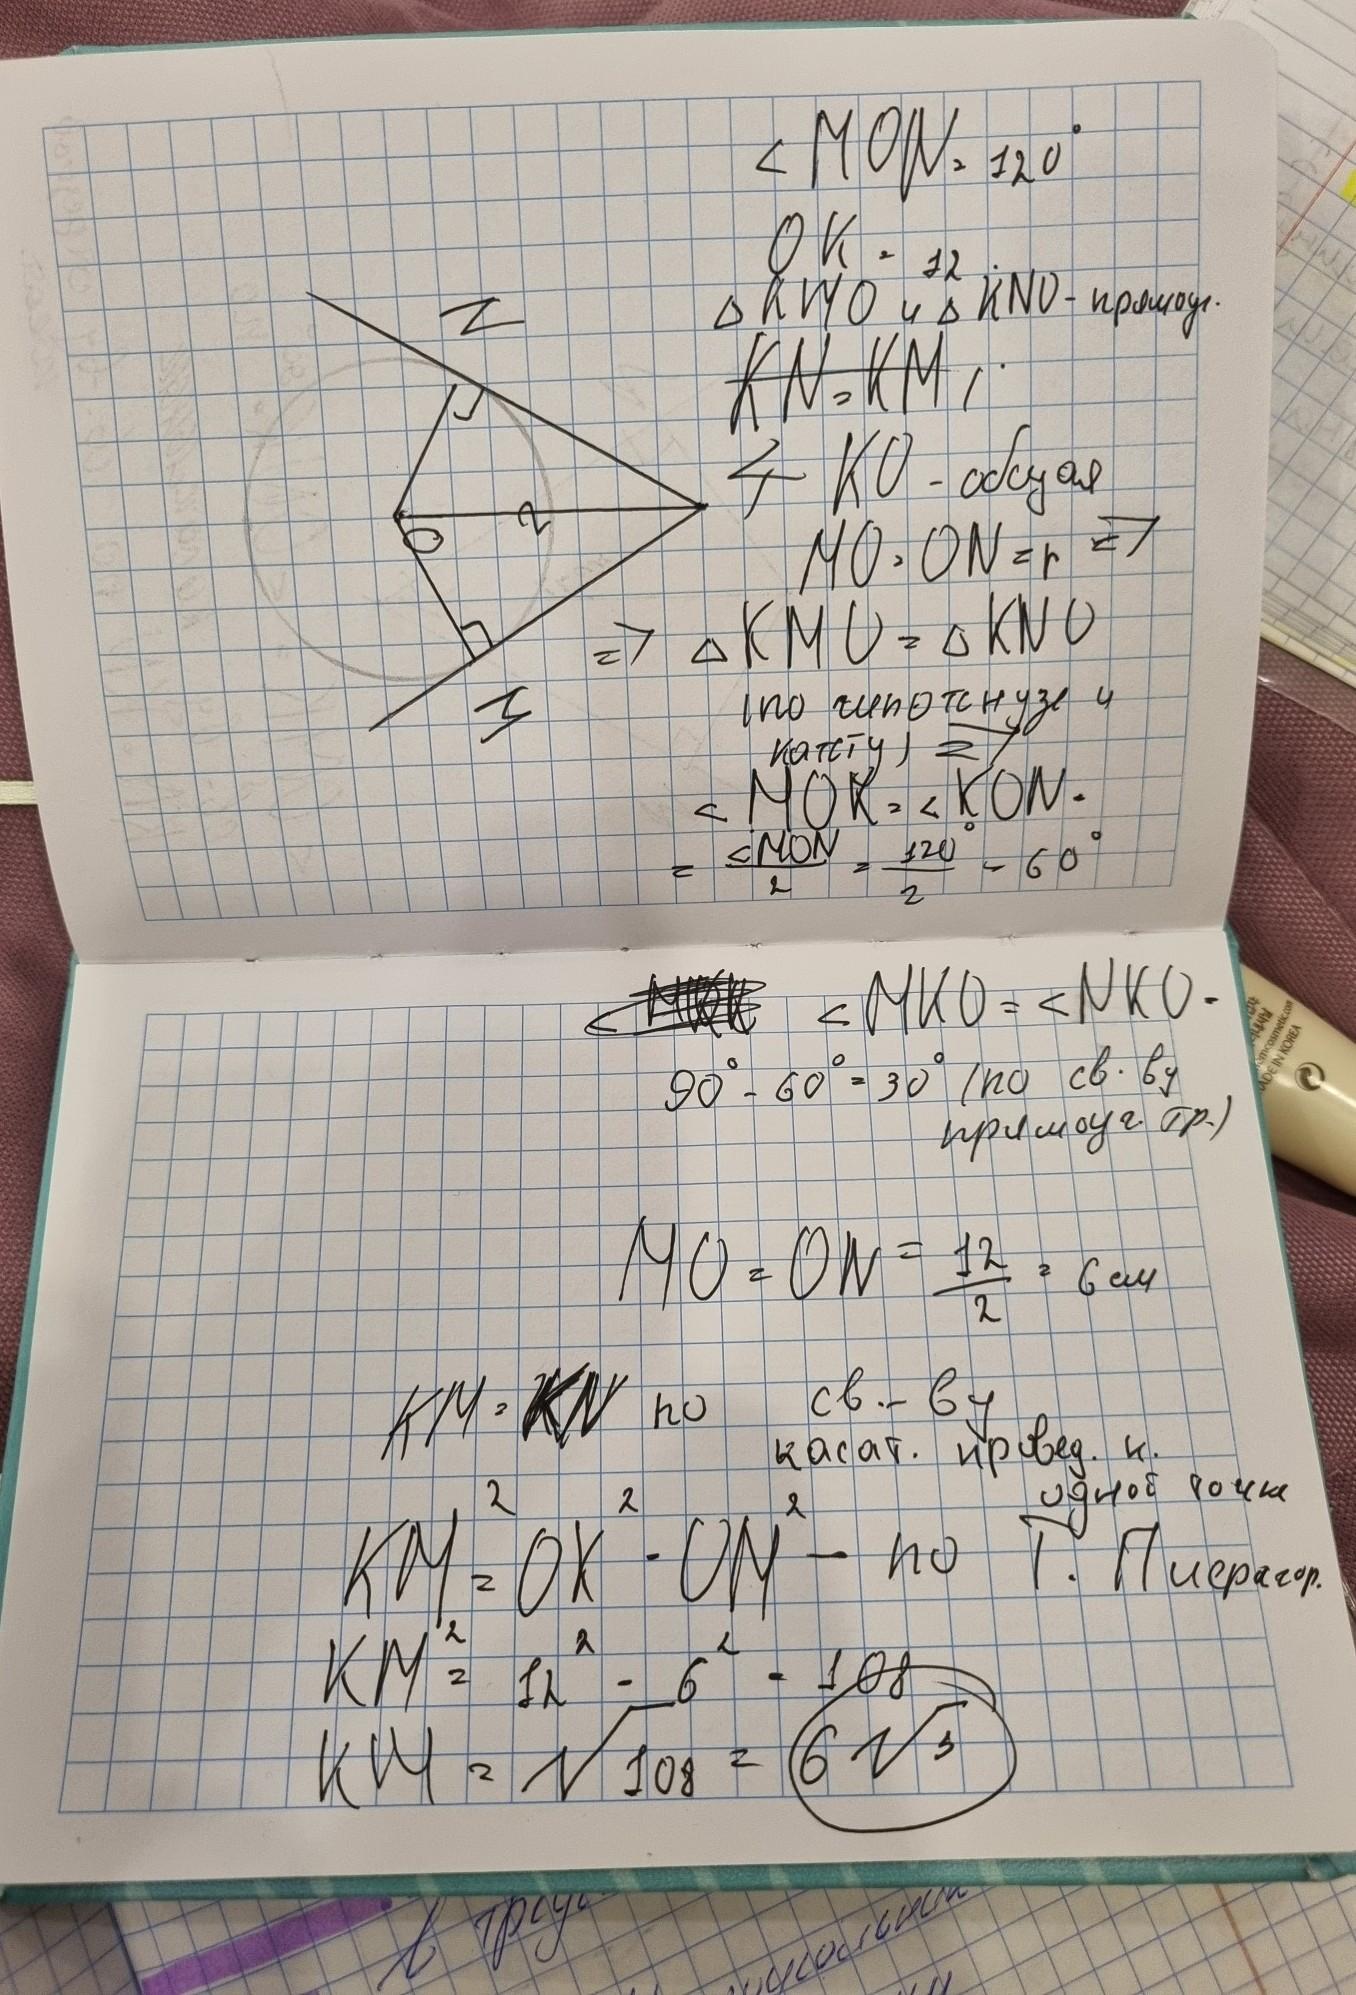 < MON = 120°
OK = 12
△ KMO и △ KNO - прямоуг.
KN = KM,
KO - общая
MO = ON = r =>
=> △ KMO = △ KNO
(по гипотенузе и
катету) =>
< MOK = < KON =
= <MON/2 = 120°/2 = 60°
N
O
2
K
M
< MKO = < NKO =
90° - 60° = 30° (по св. ву
прямоуг. тр.)
MO = ON = 12/2 = 6 см
KM = KN по св.-ву
касат. провед. к.
одной точке
KM² = OK² - OM² - по Т. Пифагор.
KM² = 12² - 6² = 108
KM = √108 = 6√3
MADE IN KOREA
в треуг